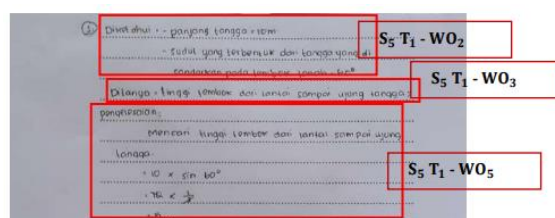 ① Diketahui : - panjang tangga = 10m
- sudut yang terbentuk dari tangga yang di
sandarkan pada tembok = 60°
Ditanya = tinggi tembok dari lantai sampai ujung tangga?
penyelesaian:
mencari tinggi tembok dari lantai sampai ujung
tangga
= 10 × sin 60°
S₅ T₁ - WO₂
S₅ T₁ - WO₃
S₅ T₁ - WO₅